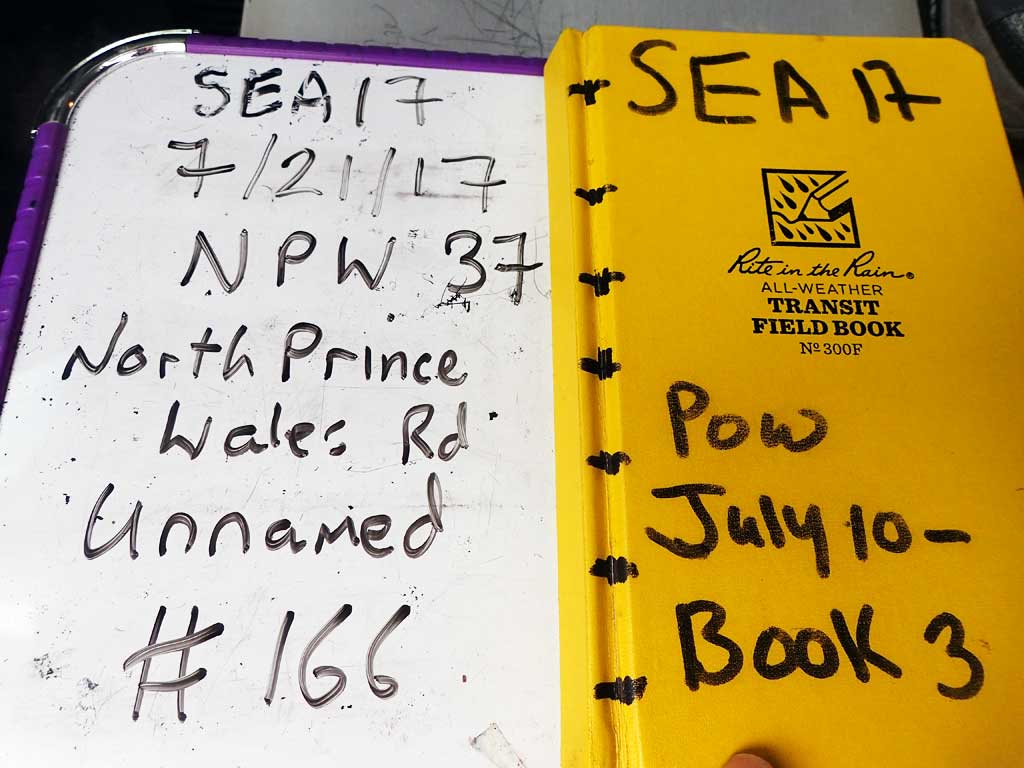 SEA 17
7/21/17
NPW 37
North Prince
Wales Rd
Unnamed
# 166
SEA 17
Rite in the Rain®
ALL-WEATHER
TRANSIT
FIELD BOOK
Nº 300F
POW
July 10 –
BOOK 3